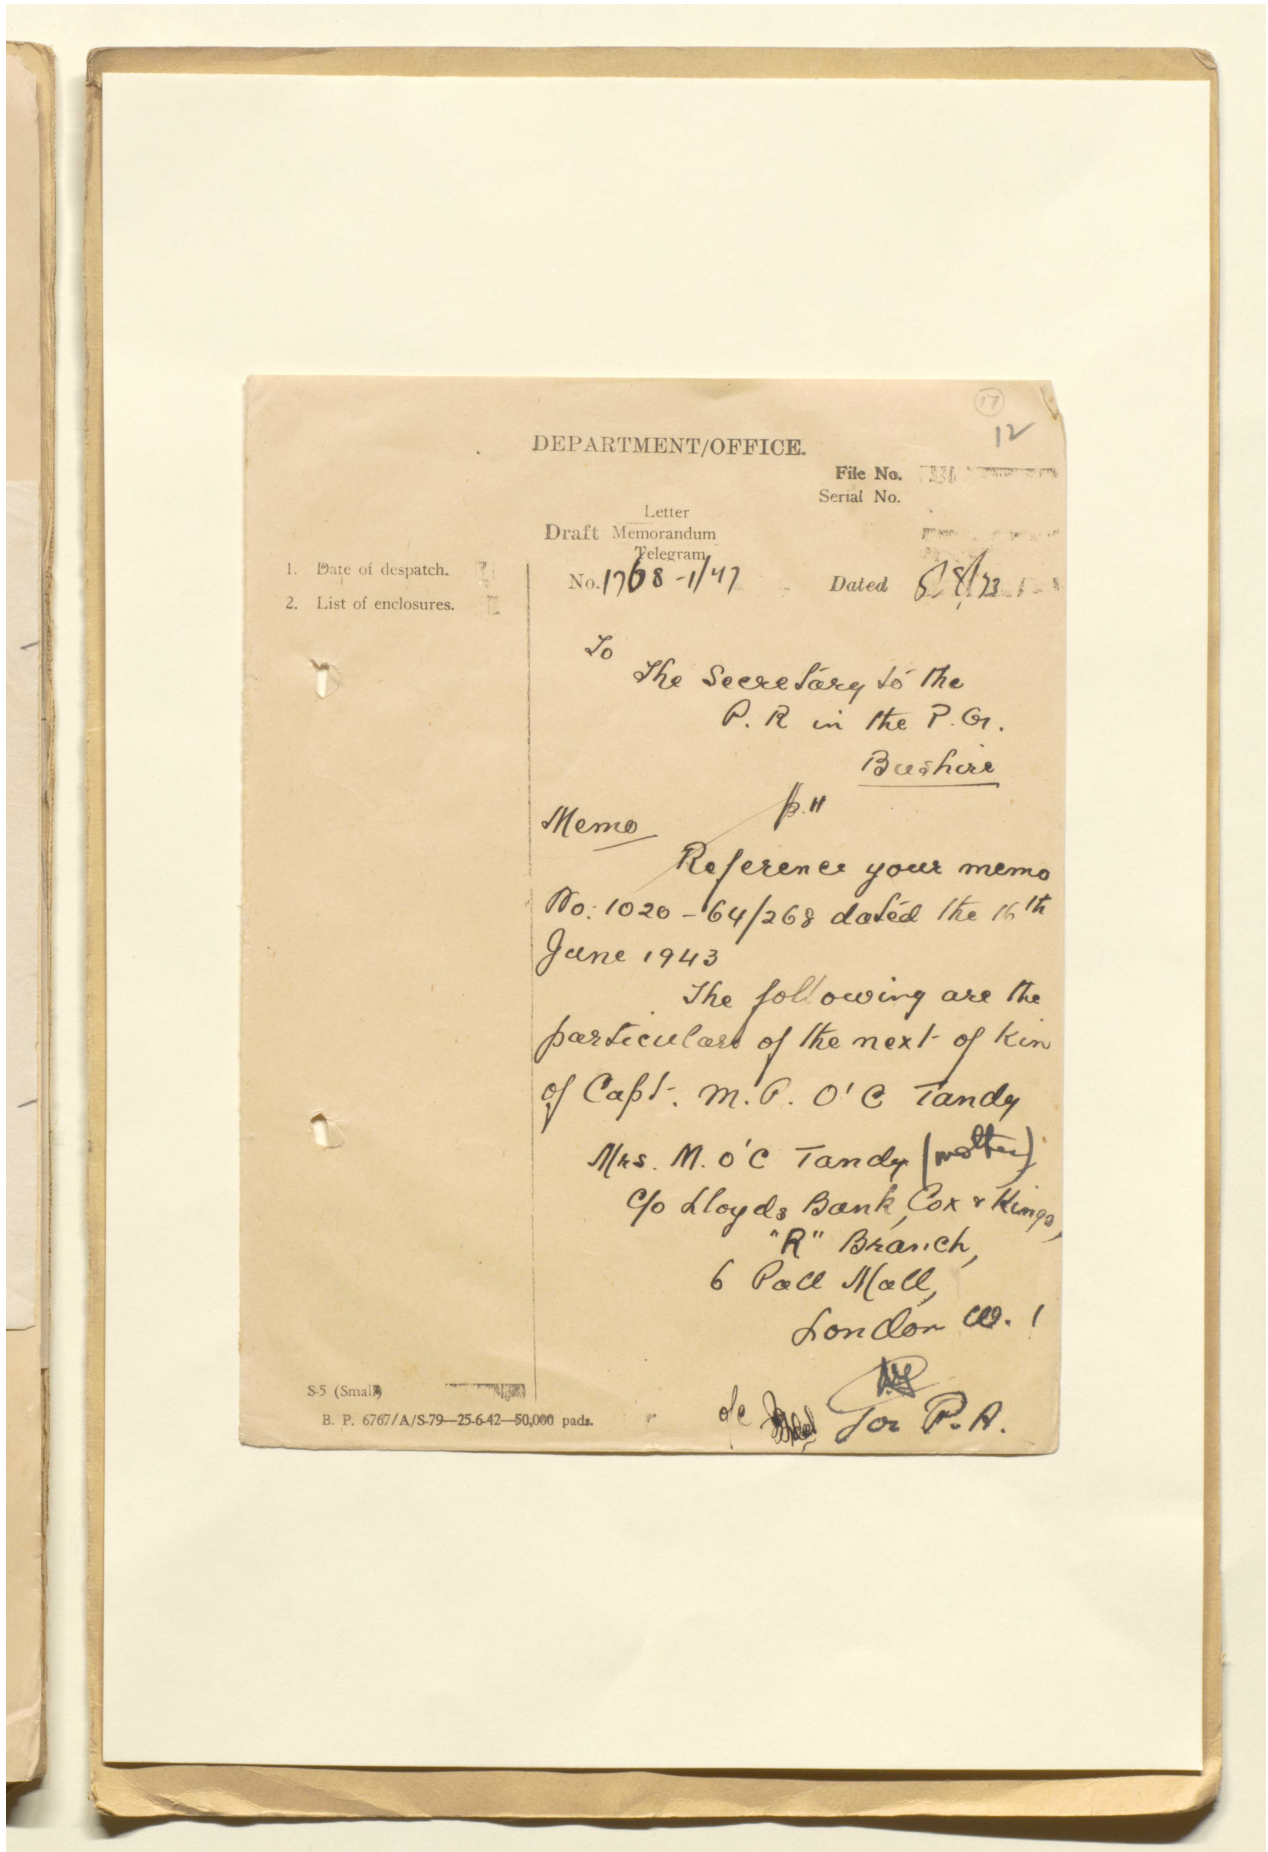 17
12
DEPARTMENT/OFFICE.
File No.
Serial No.
Letter
Draft Memorandum
Telegram
1. Date of despatch.
No. 1768-1/47 Dated
2. List of enclosures.
To
The Secretary to the
P. R in the P. G.
Bushire
p. 11
Memo
Reference your memo
No: 1020-64/268 dated the 16th
June 1943
The following are the
particulars of the next of kin
of Capt. M. P. O'C Tandy
Mrs. M. O'C Tandy (mother)
c/o Lloyds Bank, Cox & Kings,
"R" Branch,
6 Pall Mall,
London W. 1
S-5 (Small)
B. P. 6767/A/S-79—25-6-42—50,000 pads.
o/c for P. A.